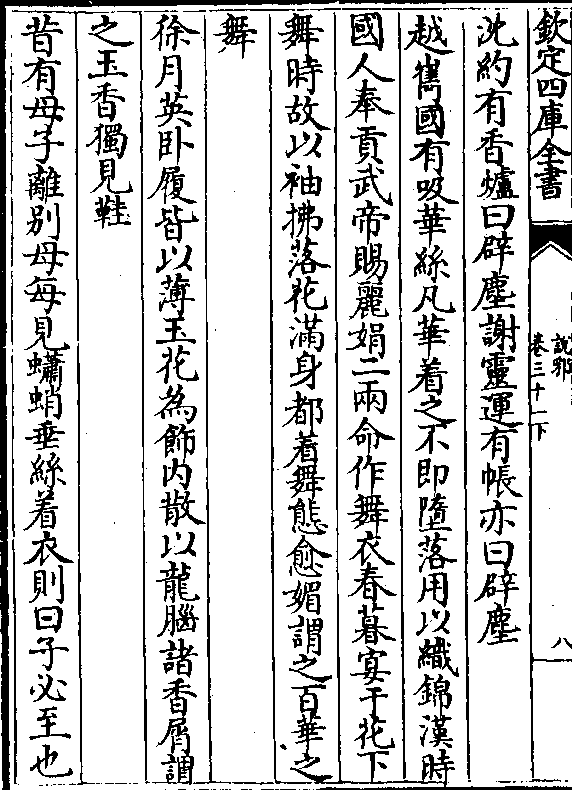 欽定四庫全書
說郛
卷三十一下
八
沈約有香爐曰辟塵謝靈運有帳亦曰辟塵
越嶲國有吸華絲凡華着之不即墮落用以織錦漢時
國人奉貢武帝賜麗娟二兩命作舞衣春暮宴于花下
舞時故以袖拂落花滿身都着舞態愈媚謂之百華之
舞
徐月英卧履皆以薄玉花為飾内散以龍腦諸香屑謂
之玉香獨見鞋
昔有母子離別母每見蠨蛸垂絲着衣則曰子必至也